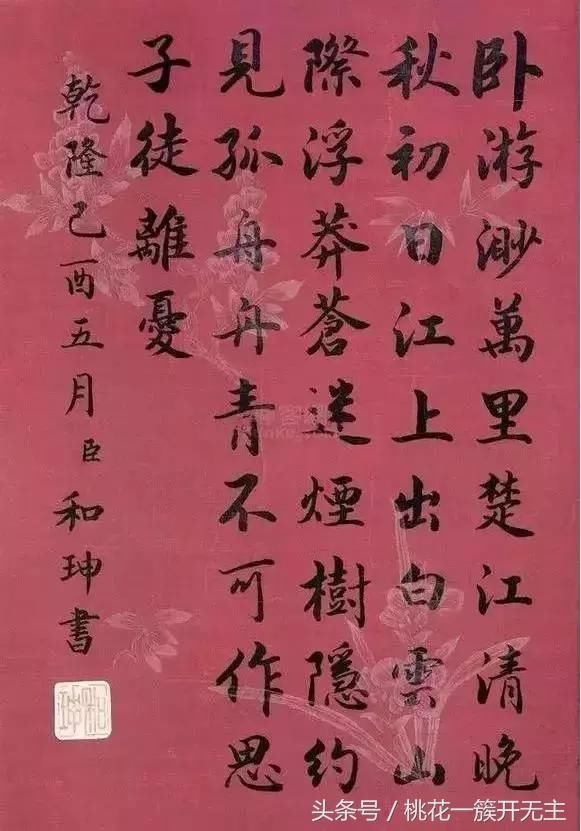 卧游渺萬里楚江清晚
秋初日江上出白雲山
際浮莽蒼迷煙樹隱約
見孤舟舟青不可作思
子徒離憂
乾隆己酉五月臣和珅書
头条号 / 桃花一簇开无主